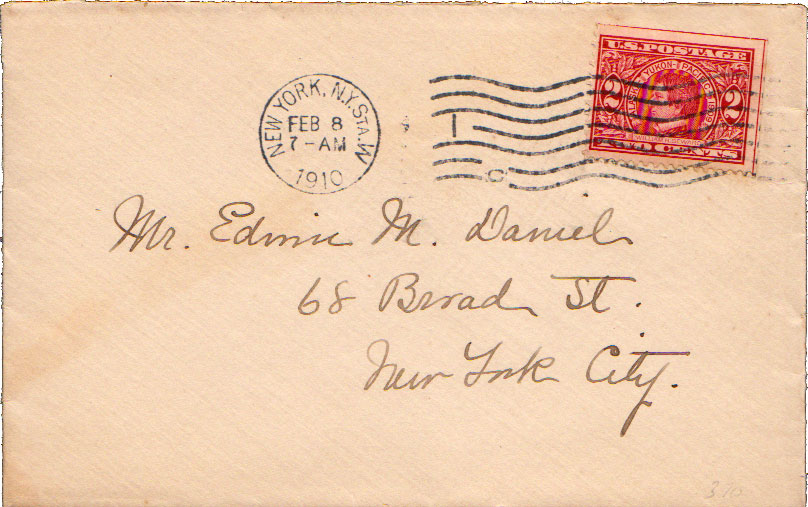 U.S. POSTAGE
YUKON-PACIFIC 1909
2 2
CENTS
NEW YORK, N.Y. STA. W
FEB 8
7-AM
1910
I
C
Mr. Edwin M. Daniel
68 Broad St.
New York City.
370